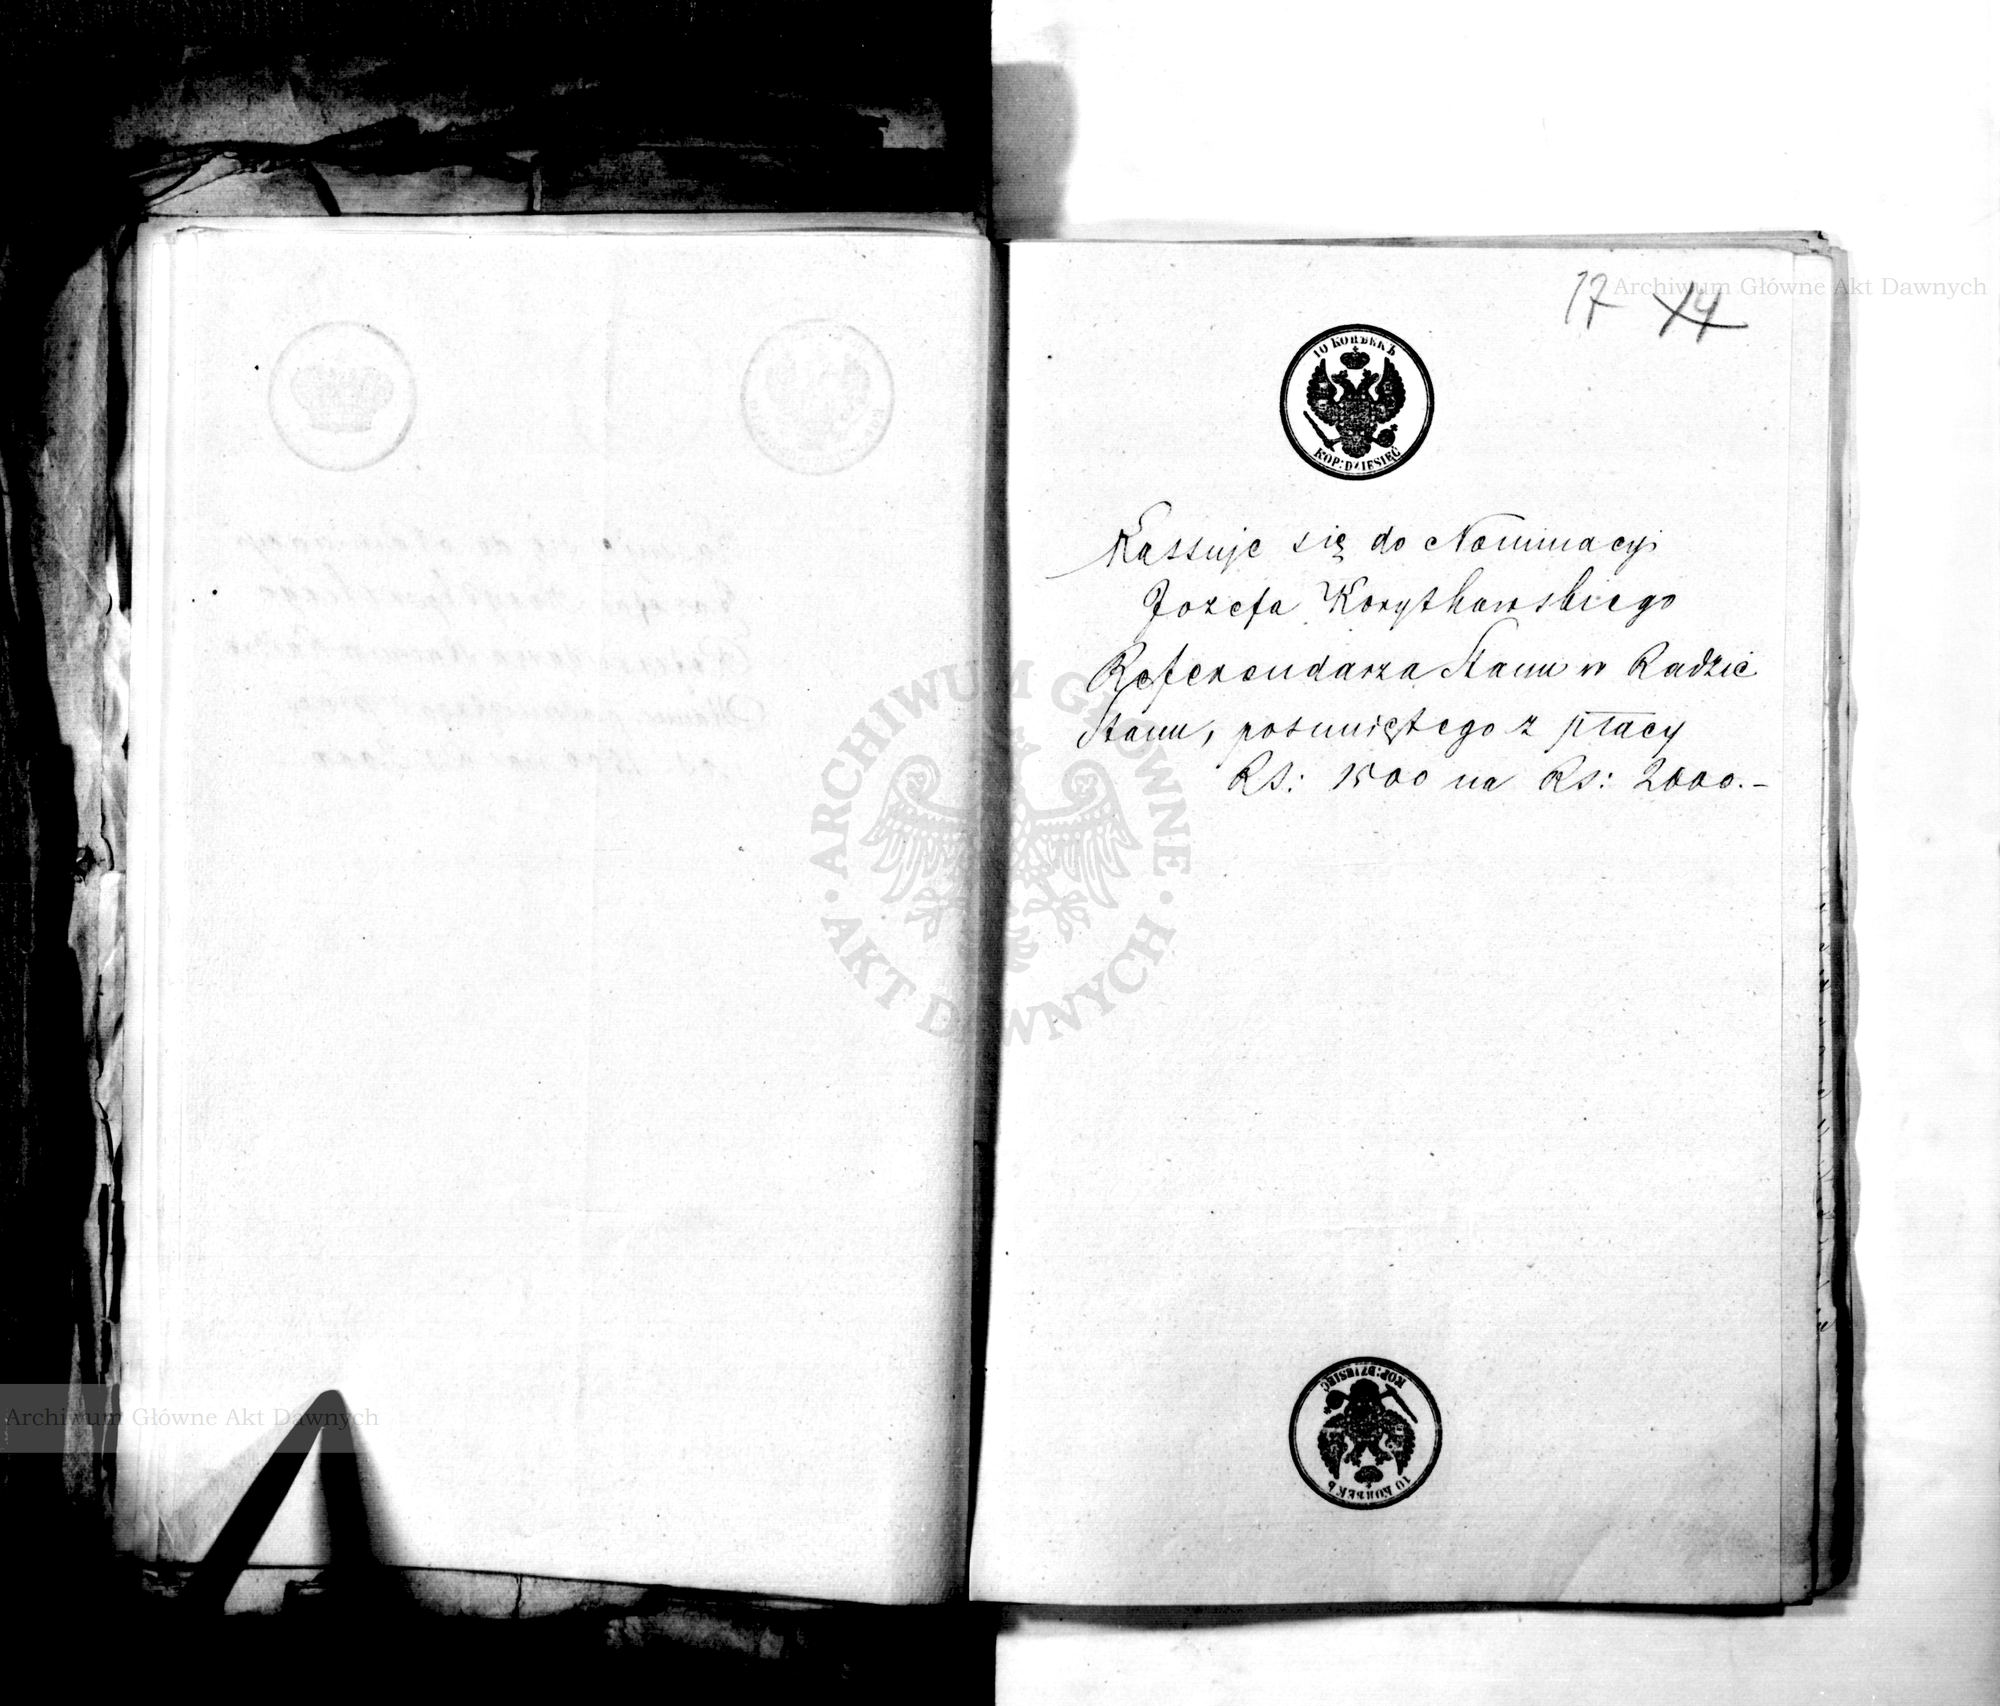 17 14
Archiwum Główne Akt Dawnych
10 КОПѢЕКЪ
KOP: DZIESIĘĆ
Kassuje się do Nominacyi
Jozefa Korythowskiego
Referendarza Stanu w Radzie
Stanu, posuniętego z płacy
RS: 1500 na RS: 2000.-
ARCHIWUM GŁÓWNE
AKT DAWNYCH
KOP: DZIESIĘĆ
10 КОПѢЕКЪ
Archiwum Główne Akt Dawnych